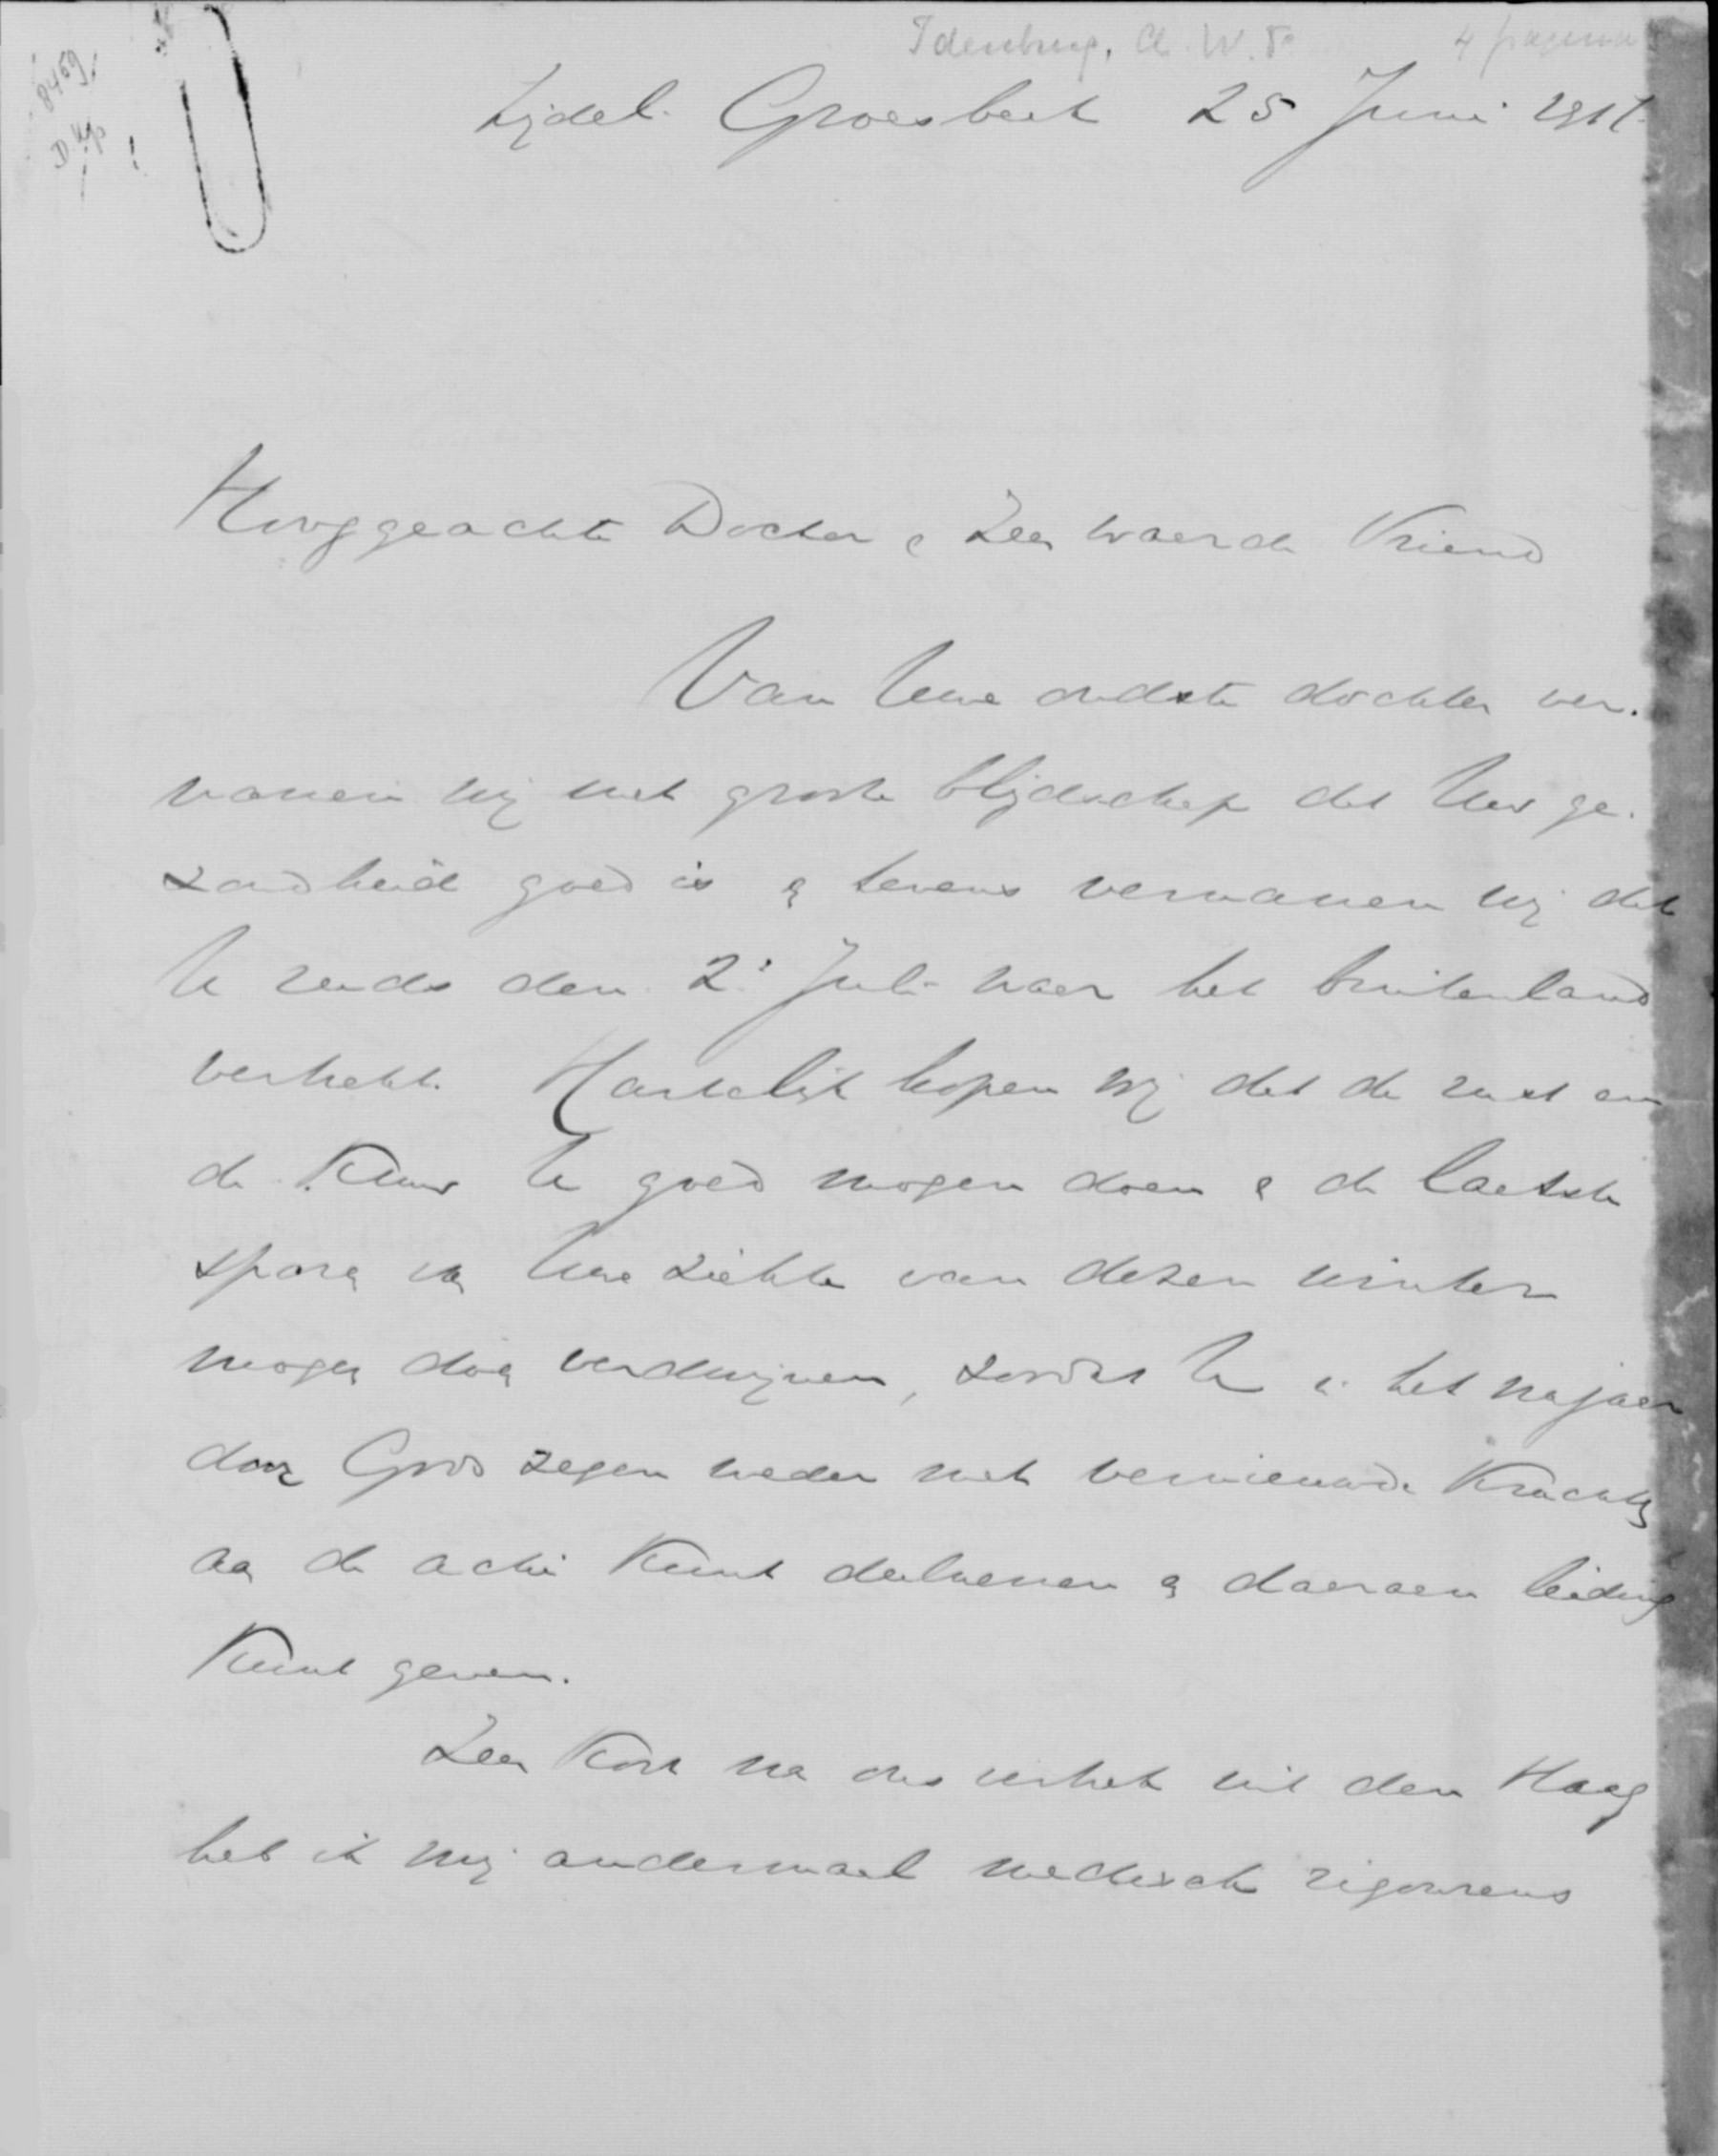 Idenburg, A. W. F. 4 pagina's
8459
Tijdel. Groesbeek 25 Juni 1917.
Hooggeachte Doctor & Zeer waarde Vriend
Van Uwe oudste dochter ver-
namen wij met groote blijdschap dat Uw ge-
zondheid goed is & tevens vernamen wij dat
U reeds den 2e Juli naar het buitenland
vertrekt. Hartelijk hopen wij dat de rust en
de Kuur U goed mogen doen & de laatste
sporen van Uwe ziekte van dezen winter
mogen doen verdwijnen, zoodat U in het najaar
door Gods zegen weder met vernieuwde Krachten
aan de actie Kunt deelnemen & daaraan leiding
Kunt geven.
Zeer Kort na ons vertrek uit den Haag
heb ik mij andermaal medisch rigoureus